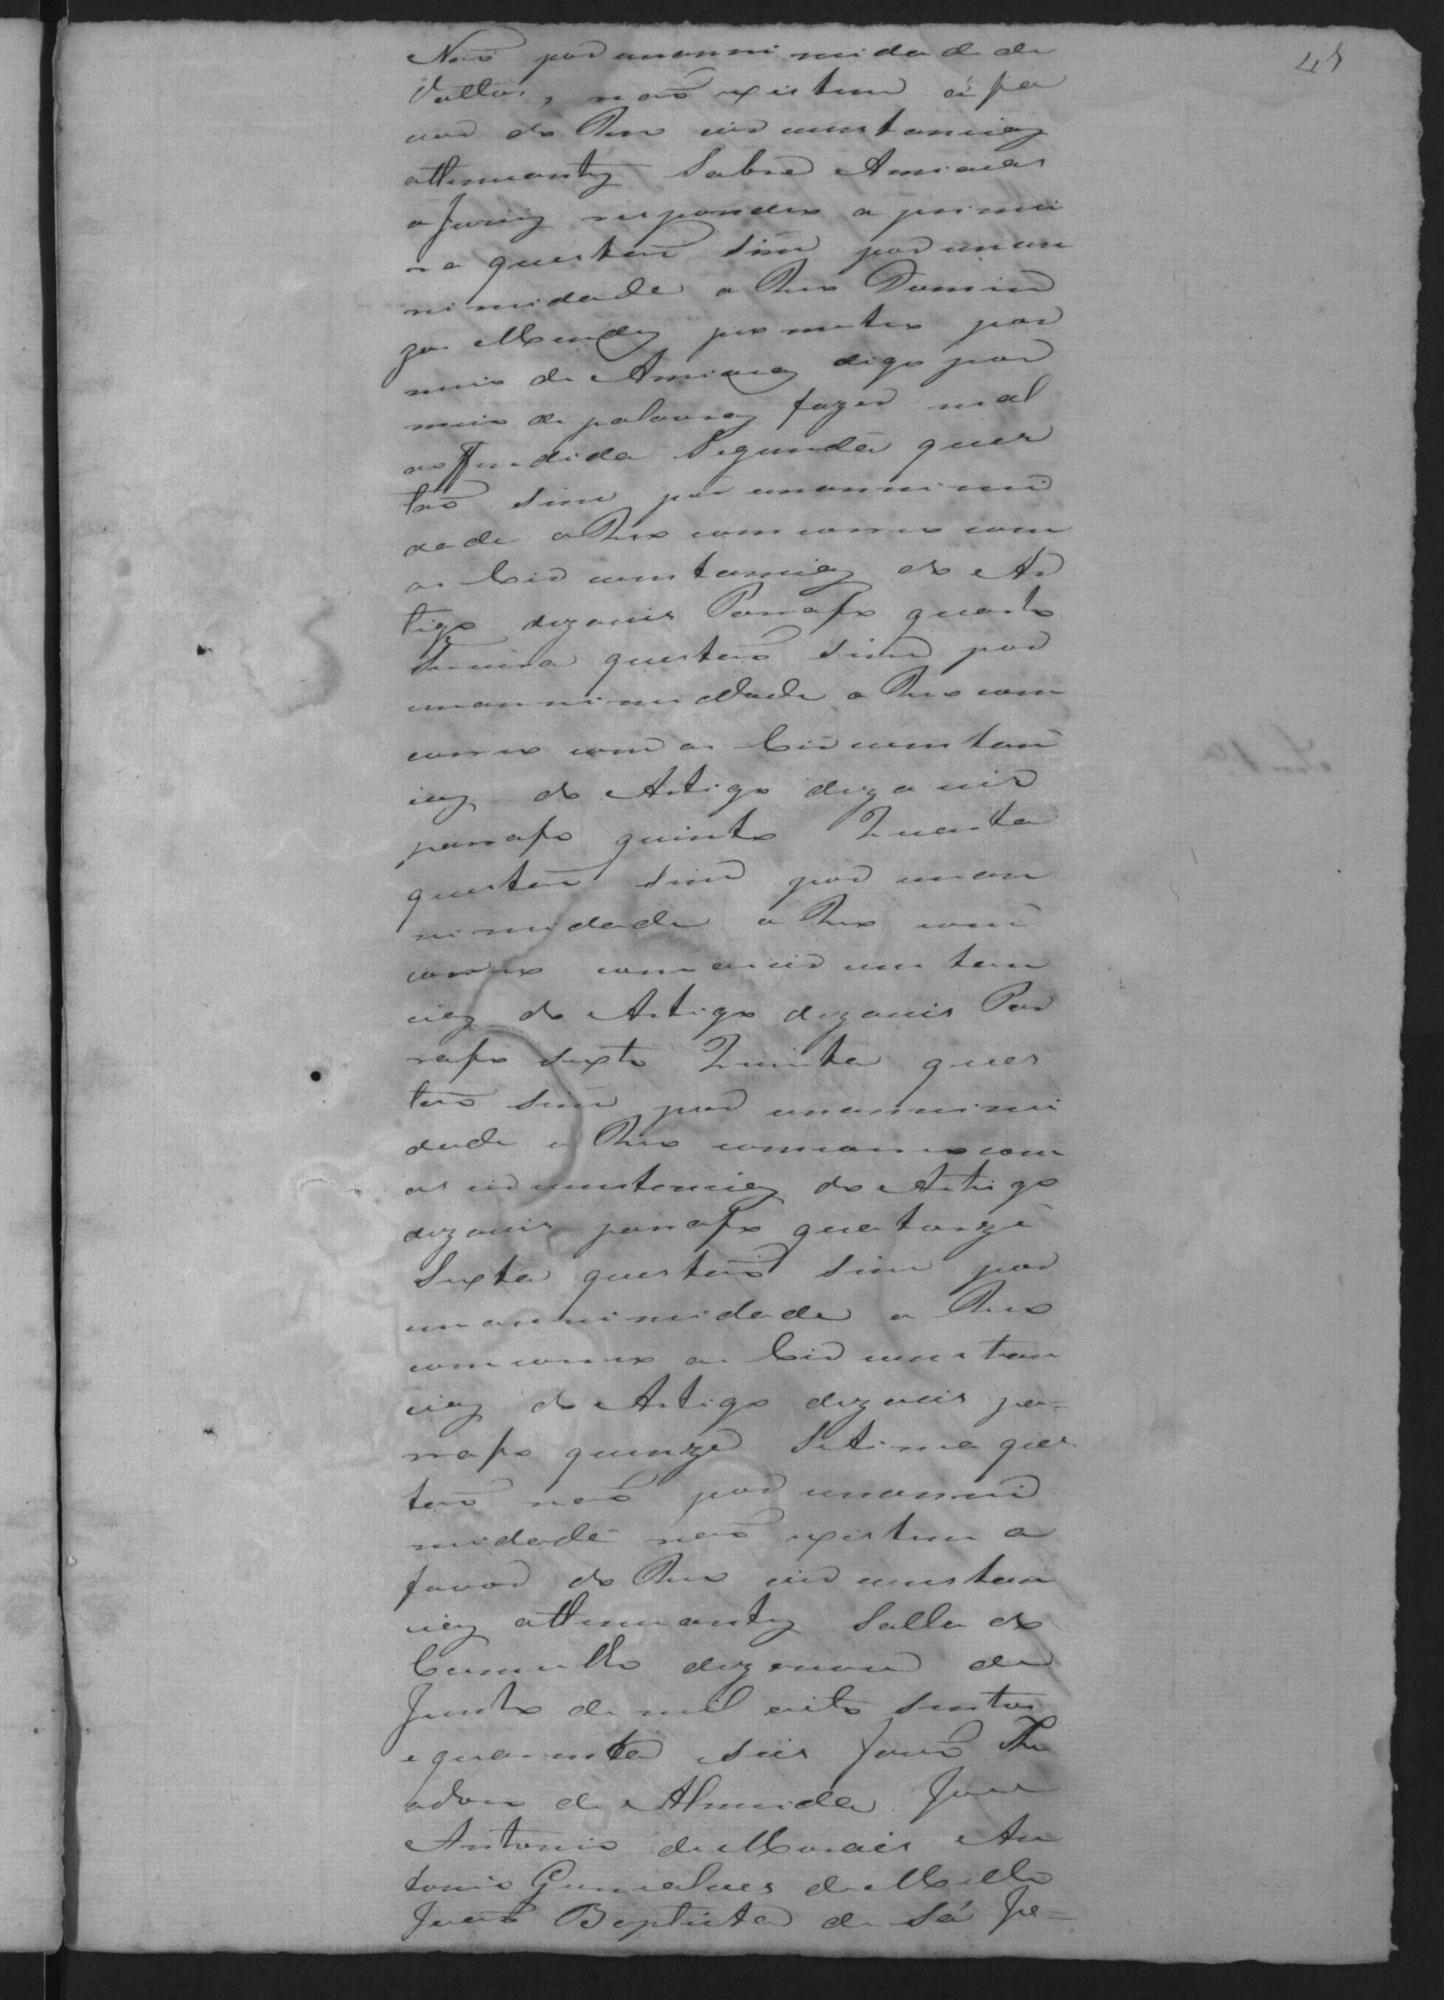 48
Não por unannimidade de
Vottos, não existem á fa
vor do Reo circunstancias
attenuantes Sobre Amiacas
o Juriz respondeo a primei
ra questão sim por unan
nimidade o Reo Domin
gos Mendes prometeo por
meio de Amiacas digo por
meio de palavras fazer mal
aoffendida Segunda ques
tão sim por unannimi
dade o Reo comcorreo com
as Circunstancias do Ar
tigo dezaceis Parrafo quarto
Terceira questão sim por
unannimidade o Reo com
correo com as Circunstan
cias do Artigo dezaceis
parrafo quinto Quarta
questão sim por unan
nimidade o Reo com
correo com as circunstan
cias do Artigo dezaceis Par
rafo sexto Quinta ques
tão sim por unannimi
dade o Reo comcorreo com
as circunstancias do Artigo
dezaceis parrafo quatorze
Sexta questão sim por
unannimidade o Reo
comcorreo as Circunstan
cias do Artigo dezaceis pa=
rrafo quinze Setima ques
tão não por unannimi
midade não existem a
favor do Reo circunstan
cias attenuantes Salla do
Comcelho dezenove de
Junho de mil oito sentos
equarenta seis João The
odoro de Almeida José
Antonio de Morais An
tonio Gonsalves de Mello
João Baptista de Sá Je=